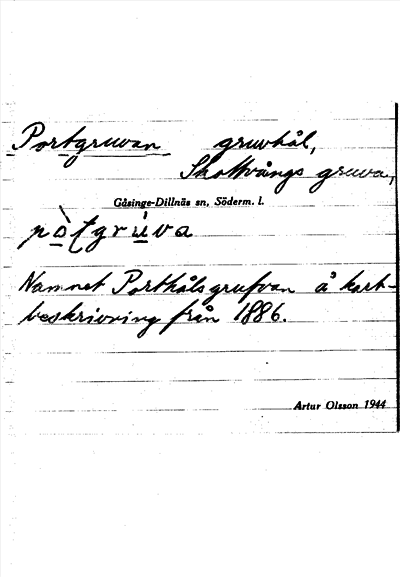 Portgruvan gruvhål,
Skottvångs gruva,
Gåsinge-Dillnäs sn, Söderm. l.
pò̱ṭgrú̱va
Namnet Porthålsgrufvan å kart-
beskrivning från 1886.
Artur Olsson 1944